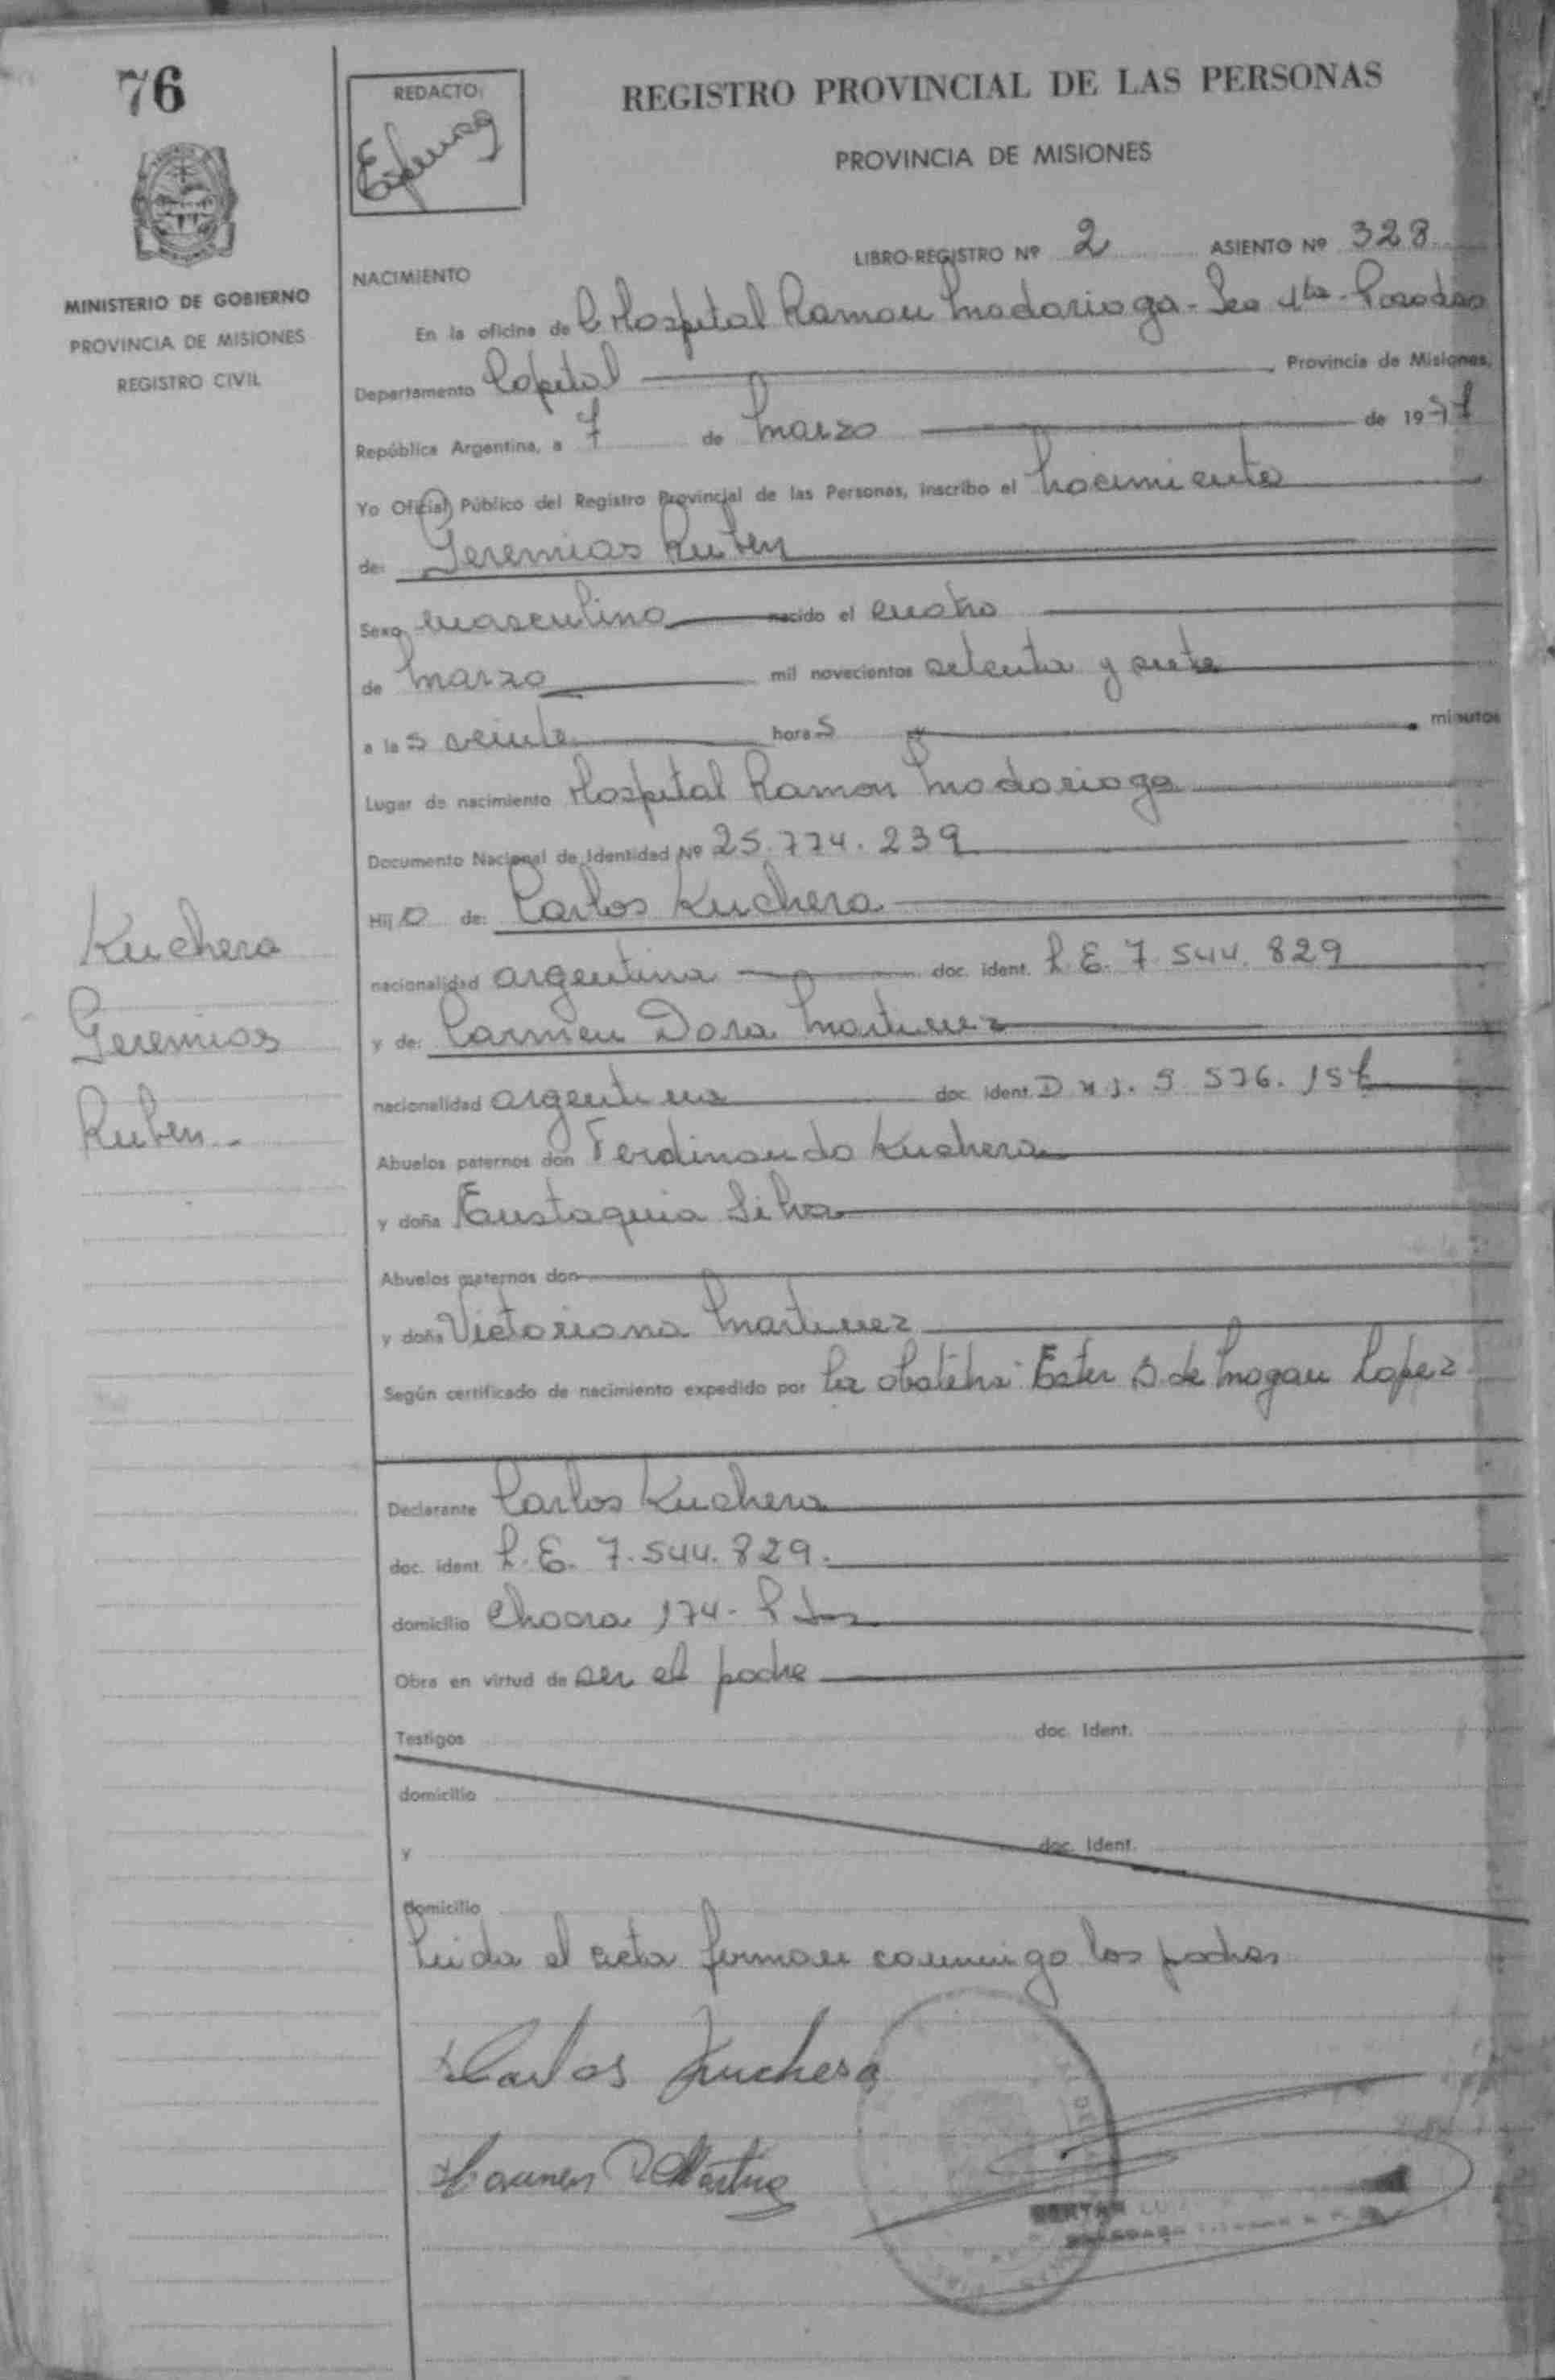 76
REDACTO:
REGISTRO PROVINCIAL DE LAS PERSONAS
PROVINCIA DE MISIONES
LIBRO-REGISTRO Nº 2 ASIENTO Nº 328
NACIMIENTO
MINISTERIO DE GOBIERNO
PROVINCIA DE MISIONES
REGISTRO CIVIL
En la oficina de Hospital Ramon Madariaga - Posadas
Departamento Capital Provincia de Misiones,
República Argentina, a 7 de Marzo de 1977
Yo Oficial Público del Registro Provincial de las Personas, inscribo el nacimiento
de: Geremias Ruben
Sexo masculino nacido el cuatro
de Marzo mil novecientos setenta y siete
a las veinte horas minutos
Lugar de nacimiento Hospital Ramon Madariaga
Documento Nacional de Identidad Nº 25.774.239
Hijo de: Carlos Kuchera
nacionalidad argentina doc. ident. L.E. 7.544.829
y de: Carmen Dora Martinez
nacionalidad argentina doc. ident. D.N.I. 5.576.157
Abuelos paternos don Ferdinando Kuchera
y doña Eustaquia Silva
Abuelos maternos don
y doña Victoriana Martinez
Según certificado de nacimiento expedido por la obstetra: Ester S. de Mogau Lopez
Kuchera
Geremias
Ruben -
Declarante Carlos Kuchera
doc. ident. L.E. 7.544.829.
domicilio Chacra 174 - Pdas
Obra en virtud de ser el padre
Testigos doc. Ident.
domicilio
y doc. Ident.
domicilio
Leida el acta firman conmigo los padres
Carlos Kuchera
Carmen D Martinez